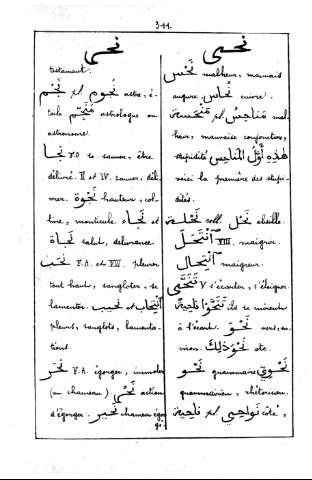 311.
نحى
نحس malheur, mauvais
augure نحاس cuivre.
منحسة pl مناحس mal-
heur, mauvaise conjoncture,
stupidité هذه أوّل المناحس
voici la première des stupi-
dités.
نحلة coll. نحل abeille.
انتحل VIII. maigrir.
انتحال maigreur.
تنحّى V s'écarter, s'éloigner.
تنحّوا ناحية ils se mirent
à l'écart. نحو vers, en-
viron. نحو ذلك etc.
نحو grammaire نحوي
grammairien, rhétoricien.
ناحية pl نواحي côté,
testament.
نجم pl نجوم astre, é-
toile منجّم astrologue ou
astronome.
نجا F.O se sauver, être
délivré. II et IV. sauver, déli-
vrer. نجوة hauteur, col-
line, monticule نجاء et
نجاة salut, délivrance.
نحب F.A. et VIII. pleurer
tout haut, sangloter, se
lamenter نحيب et انتحاب
pleurs, sanglots, lamenta-
tions.
نحر F.A. égorger, immoler
(un chameau) نحر action
d'égorger. نحير chameau égor
gé